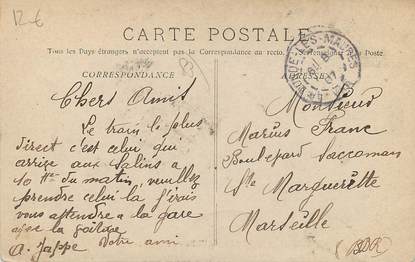 12 €
CARTE POSTALE
Tous les Pays étrangers n'acceptent pas la Correspondance au recto.
Poste.
CORRESPONDANCE
Chers Amis
Le train le plus
direct c'est celui qui
arrive aux Salins a
10 Hes du matin, veuillez
prendre celui la j'irais
vous attendre a la gare
avec la voiture
Votre ami
A. Jappe
Monsieur
Marius Franc
Boulevard Saccoman
Ste Margueritte
Marseille